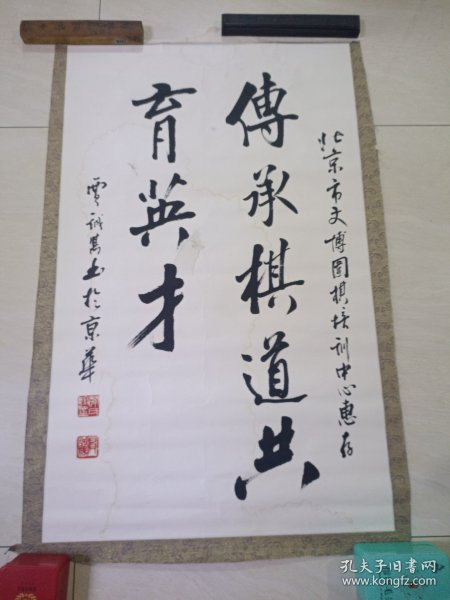 北京市文博围棋培训中心惠存
傳承棋道共
育英才
贾誠篤书於京華
孔夫子旧书网
www.kongfz.com